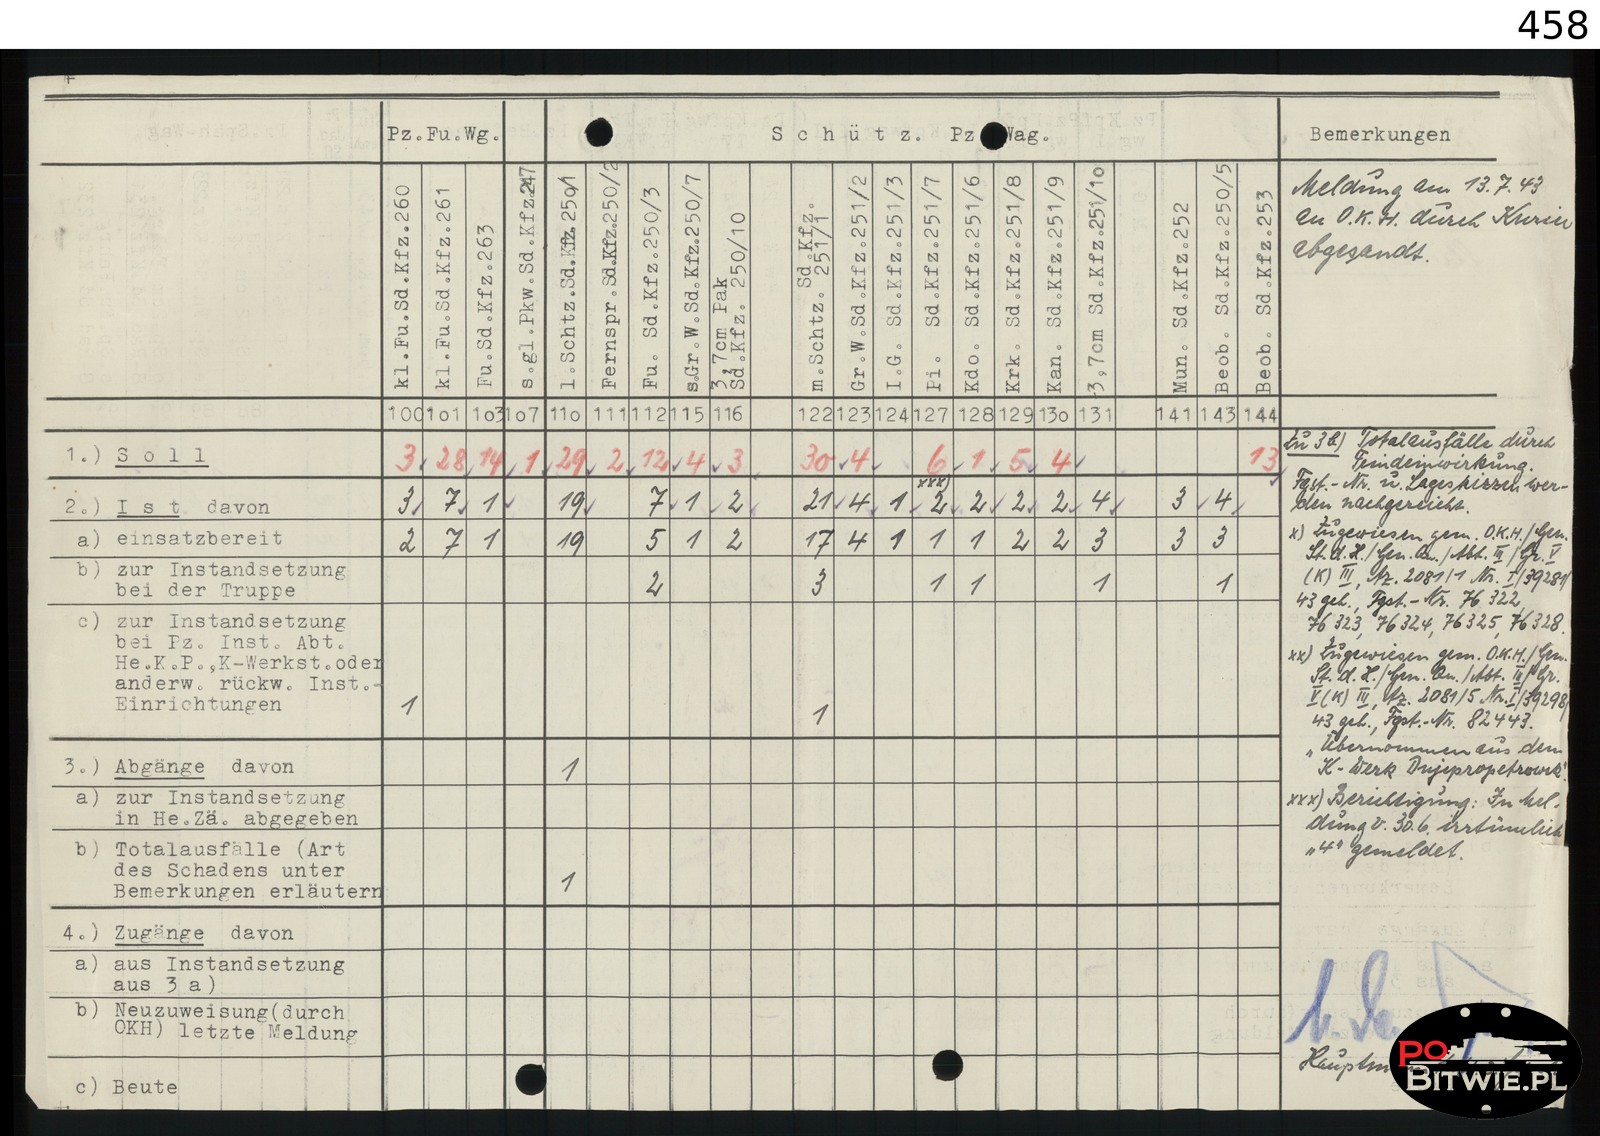 458
Pz.Fu.Wg.
Schütz. Pz Wag.
Bemerkungen
kl.Fu.Sd.Kfz.260
kl.Fu.Sd.Kfz.261
Fu.Sd.Kfz.263
s.gl.Pkw.Sd.Kfz.247
l.Schtz.Sd.Kfz.250/1
Fernspr.Sd.Kfz.250/2
Fu. Sd.Kfz.250/3
s.Gr.W.Sd.Kfz.250/7
3,7cm Pak
Sd.Kfz. 250/10
m.Schtz. Sd.Kfz.
251/1
Gr.W.Sd.Kfz.251/2
I.G. Sd.Kfz.251/3
Pi. Sd.Kfz.251/7
Kdo. Sd.Kfz.251/6
Krk. Sd.Kfz.251/8
Kan. Sd.Kfz.251/9
3,7cm Sd.Kfz.251/10
Mun. Sd.Kfz.252
Beob. Sd.Kfz.250/5
Beob. Sd.Kfz.253
Meldung am 13.7.43
an O.K.H. durch Kurier
abgesandt.
100 101 103 107 110 111 112 115 116 122 123 124 127 128 129 130 131 141 143 144
1.) Soll 3 28 14 1 29 2 12 4 3 30 4 6 1 5 4 13
xxx)
2.) Ist davon 3 7 1 19 7 1 2 21 4 1 2 2 2 2 4 3 4
a) einsatzbereit 2 7 1 19 5 1 2 17 4 1 1 1 2 2 3 3 3
b) zur Instandsetzung
bei der Truppe 2 3 1 1 1 1
c) zur Instandsetzung
bei Pz. Inst. Abt.
He.K.P.,K-Werkst.oder
anderw. rückw. Inst.-
Einrichtungen 1 1
3.) Abgänge davon 1
a) zur Instandsetzung
in He.Zä. abgegeben
b) Totalausfälle (Art
des Schadens unter
Bemerkungen erläutern 1
4.) Zugänge davon
a) aus Instandsetzung
aus 3 a)
b) Neuzuweisung(durch
OKH) letzte Meldung
c) Beute
Zu 3b) Totalausfälle durch
Feindeinwirkung.
Fgst.-Nr. u. Lageskizzen wer-
den nachgereicht.
x) Zugewiesen gem. O.K.H./Gen.
St.d.H./Gen.Qu./Abt. III/Gr. V
(K) III, Az. 2081/1 Nr. I/39281/
43 geh., Fgst.-Nr. 76 322,
76 323, 76 324, 76 325, 76 328.
xx) Zugewiesen gem. O.K.H./Gen.
St.d.H./Gen.Qu./Abt. III/Gr.
V (K) III, Az. 2081/5 Nr. I/39298/
43 geh., Fgst.-Nr. 82443.
"Übernommen aus dem
K-Werk Dnjepropetrowsk".
xxx) Berichtigung: In Mel-
dung v. 30.6. irrtümlich
"4" gemeldet.
PO
BITWIE.PL